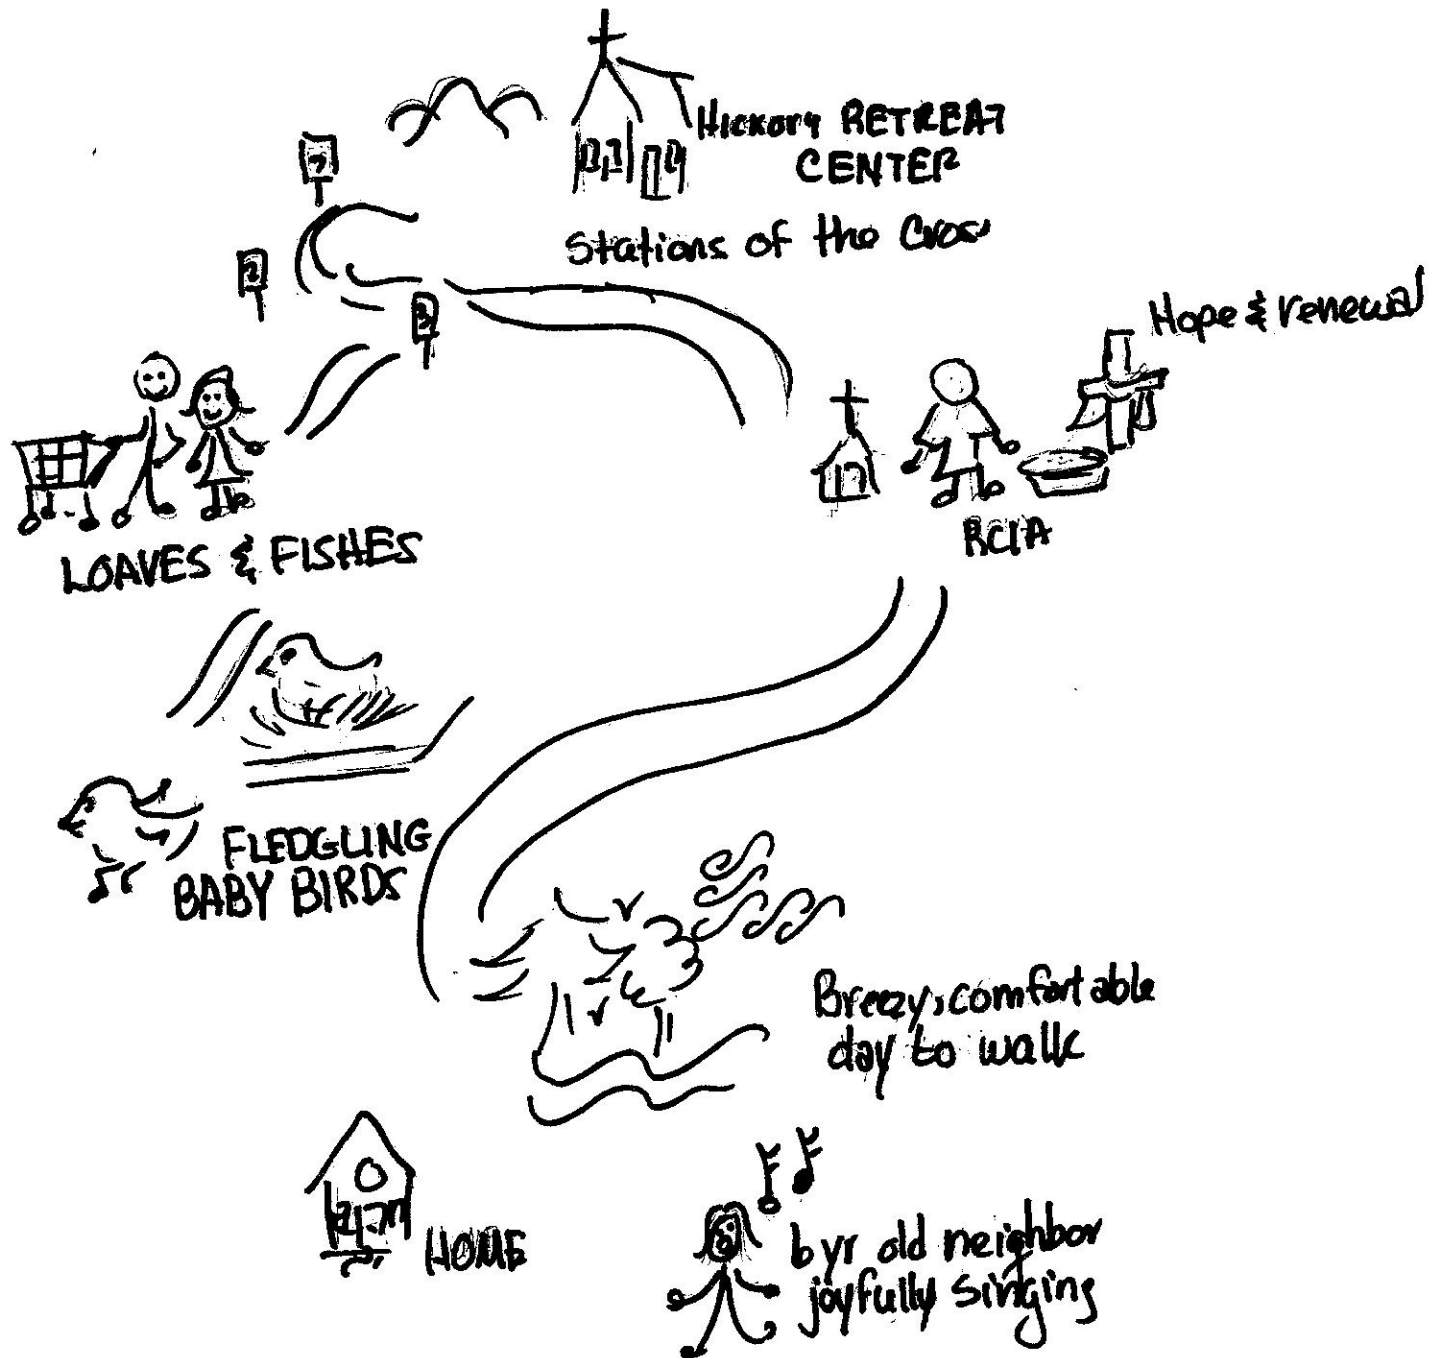 Hickory RETREAT
CENTER
Stations of the Cross
Hope & renewal
RCIA
LOAVES & FISHES
FLEDGLING
BABY BIRDS
Breezy, comfortable
day to walk
HOME
6 yr old neighbor
joyfully singing
2
3